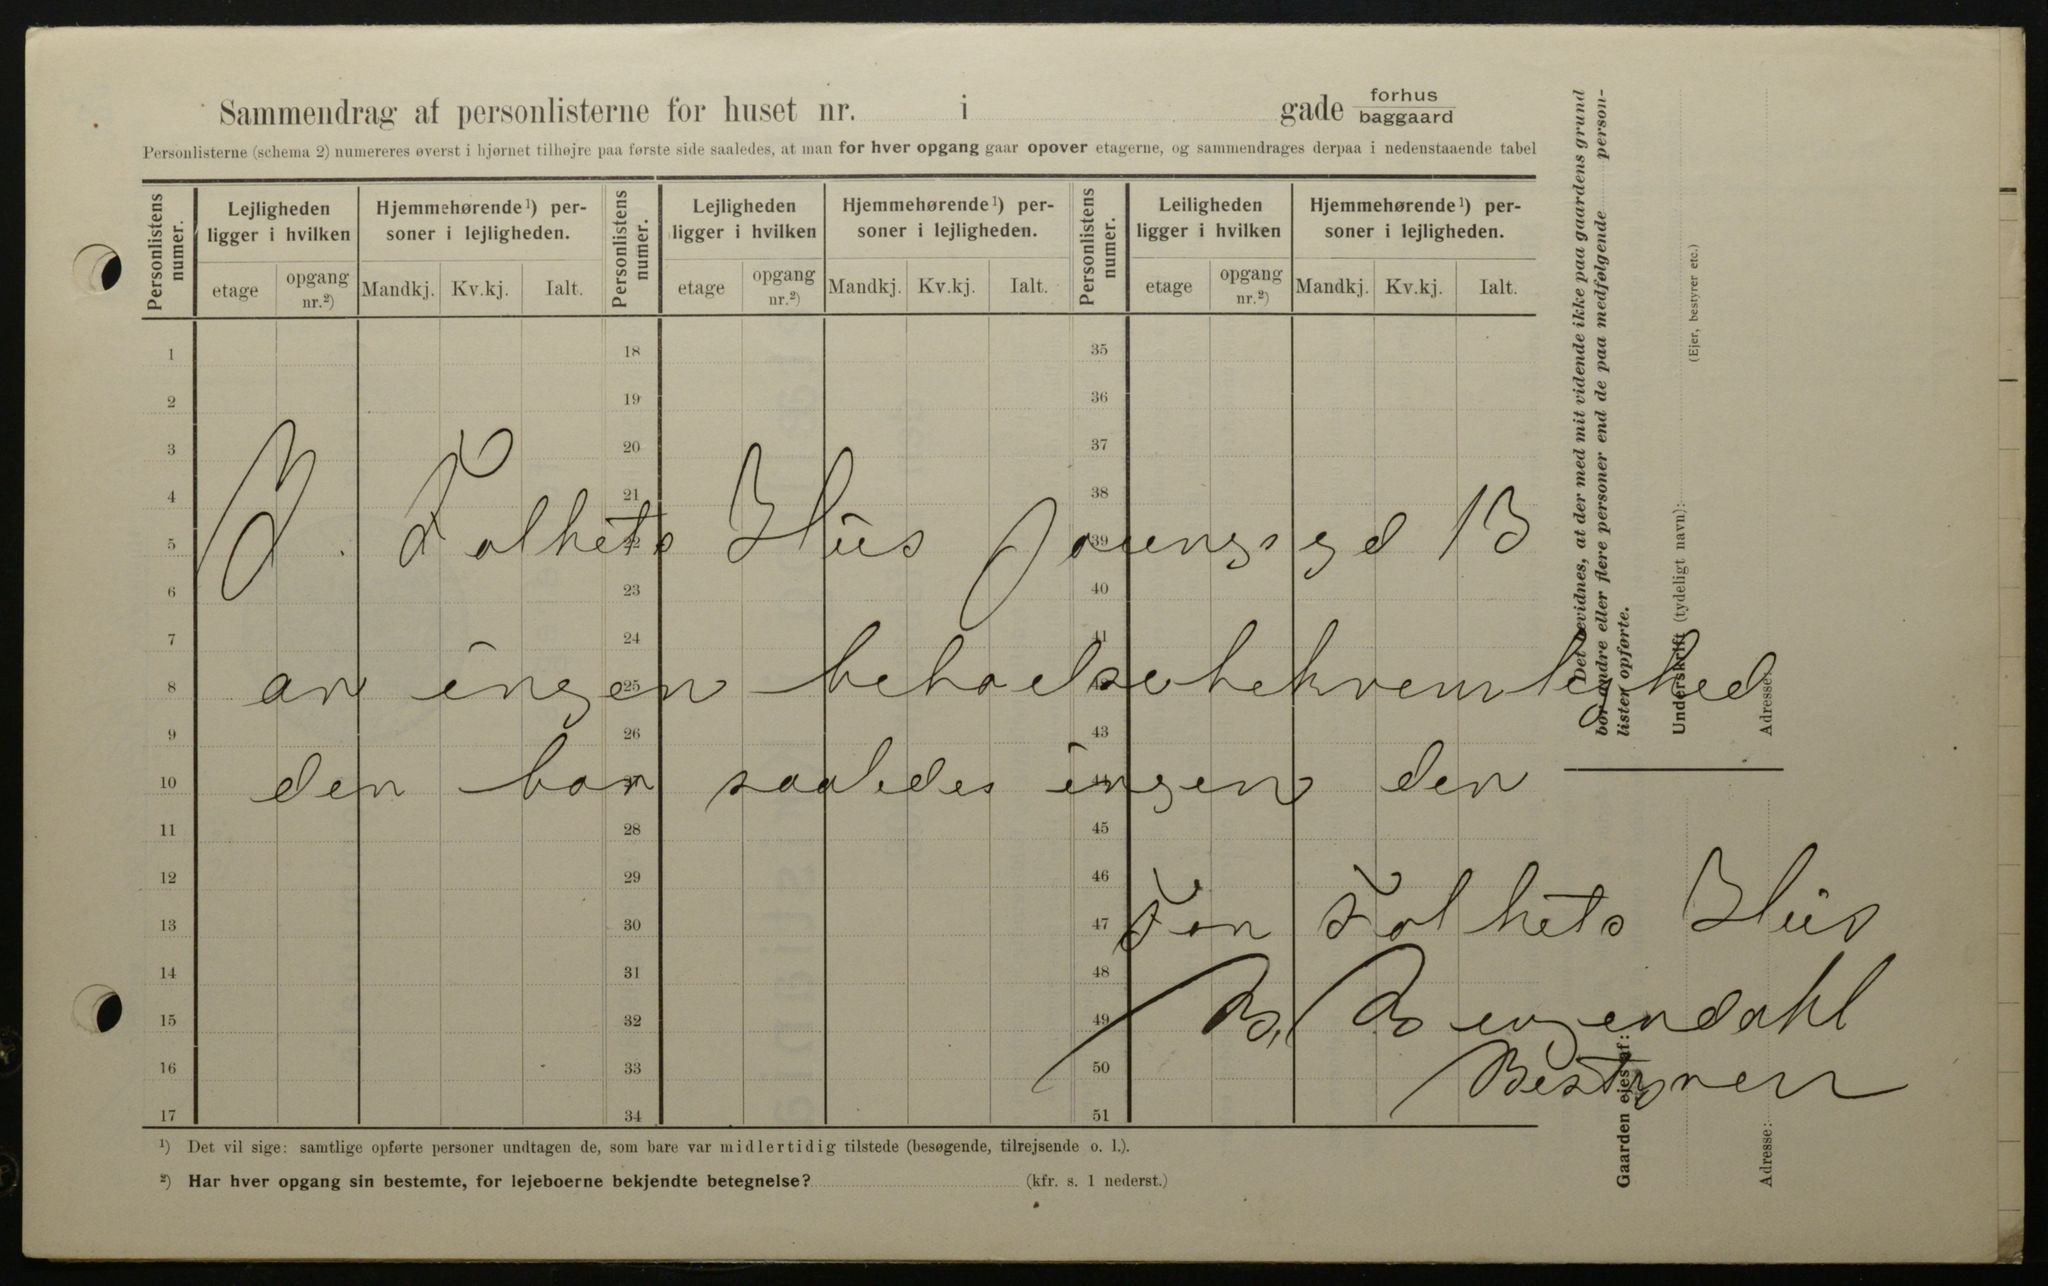 Sammendrag af personlisterne for huset nr. i gade forhus baggaard
Personlisterne (schema 2) numereres øverst i hjørnet tilhøjre paa første side saaledes, at man for hver opgang gaar opover etagerne, og sammendrages derpaa i nedenstaaende tabel
Personlistens numer.
Lejligheden ligger i hvilken
etage
opgang nr.²)
Hjemmehørende¹) personer i lejligheden.
Mandkj.
Kv.kj.
Ialt.
Personlistens numer.
Lejligheden ligger i hvilken
etage
opgang nr.²)
Hjemmehørende¹) personer i lejligheden.
Mandkj.
Kv.kj.
Ialt.
Personlistens numer.
Leiligheden ligger i hvilken
etage
opgang nr.²)
Hjemmehørende¹) personer i lejligheden.
Mandkj.
Kv.kj.
Ialt.
1 18 35
2 19 36
3 20 37
4 21 38
5 22 39
6 23 40
7 24 41
8 25 42
9 26 43
10 27 44
11 28 45
12 29 46
13 30 47
14 31 48
15 32 49
16 33 50
17 34 51
I. Folkets Hus Youngsgd 13
er ingen beboelsebekvemlighed
der bor saaledes ingen der
For Folkets Hus
Bestyrer
¹) Det vil sige: samtlige opførte personer undtagen de, som bare var midlertidig tilstede (besøgende, tilrejsende o. l.).
²) Har hver opgang sin bestemte, for lejeboerne bekjendte betegnelse? (kfr. s. 1 nederst.)
Det bevidnes, at der med mit vidende ikke paa gaardens grund
bor andre eller flere personer end de paa medfølgende person-
lister opførte.
Underskrift (tydeligt navn):
(Ejer, bestyrer etc.)
Adresse:
Gaarden ejes af:
Adresse: